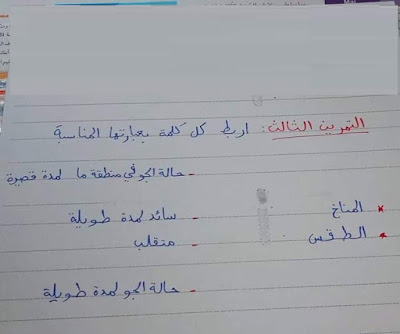 التمرين الثالث: اربط كل كلمة بعبارتها المناسبة
- حالة الجو في منطقة ما لمدة قصيرة
* المناخ - سائد لمدة طويلة
* الطقس - متقلب
- حالة الجو لمدة طويلة